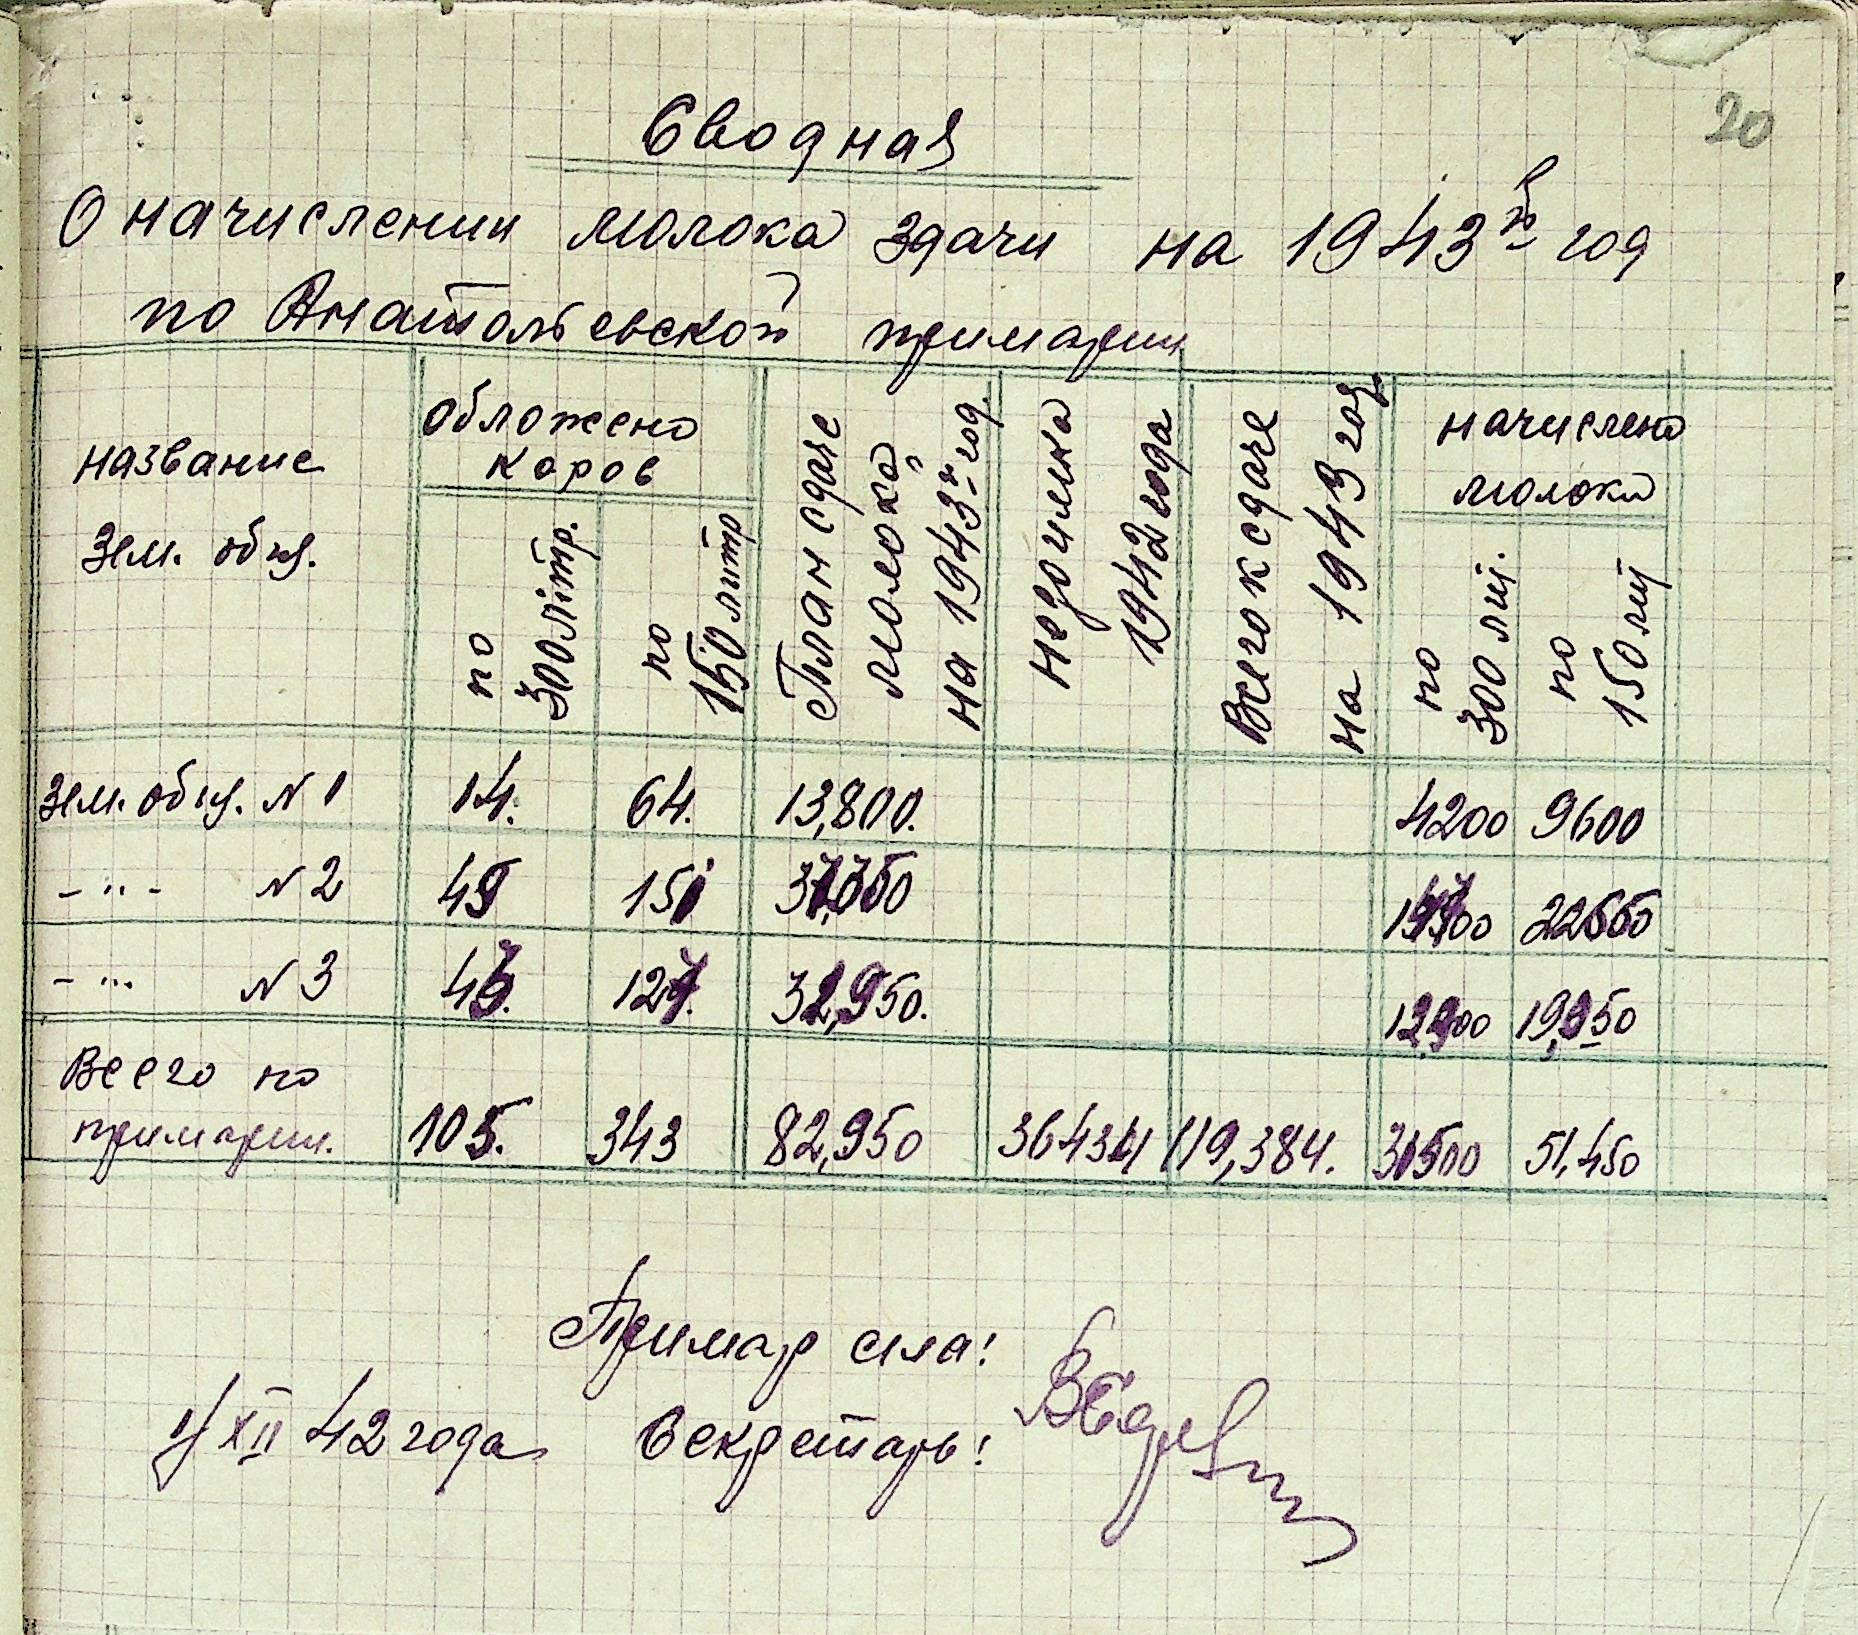 20
Сводная
О начислении молока здачи на 1943й год
по Анатольевской примарии
название зем. общ.
обложено коров
по 300 літр.
по 150 литр
План сдаче молока на 1943й год.
недоимка 1942 года
Всего к сдаче на 1943 год
начислено молоки
по 300 лит.
по 150 лит
Зем. общ. N 1 14. 64. 13,800. 4200 9600
- " - N 2 151 22650
- " - N 3 32,950.
Всего по
примарии. 105. 343 82,950 36434 119,384. 31500 51,450
Примар села!
1/XII 42 года Секретарь!